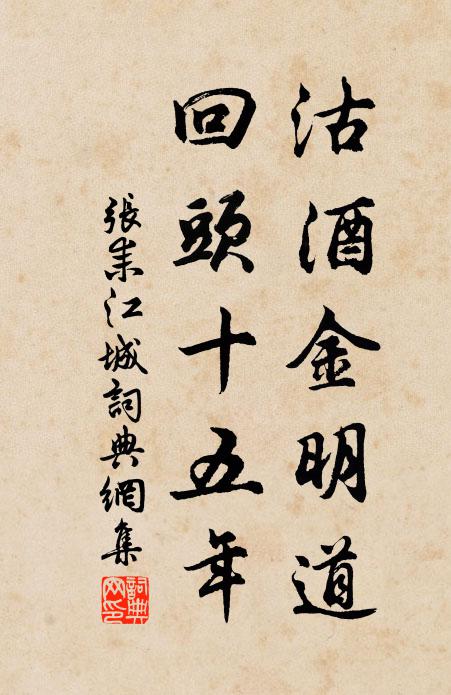 沽酒金明道
回頭十五年
張耒江城詞典網集
詞典網印